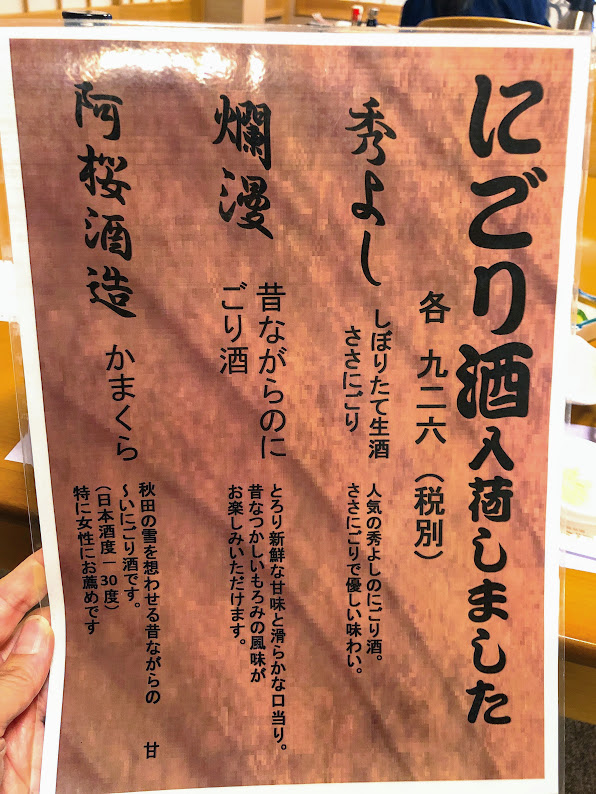 にごり酒入荷しました
各 九二六 （税別）
秀よし
しぼりたて生酒
ささにごり
人気の秀よしのにごり酒。
ささにごりで優しい味わい。
爛漫
昔ながらのに
ごり酒
とろり新鮮な甘味と滑らかな口当り。
昔なつかしいもろみの風味が
お楽しみいただけます。
阿桜酒造
かまくら
秋田の雪を想わせる昔ながらの 甘
～いにごり酒です。
（日本酒度－30度）
特に女性にお薦めです